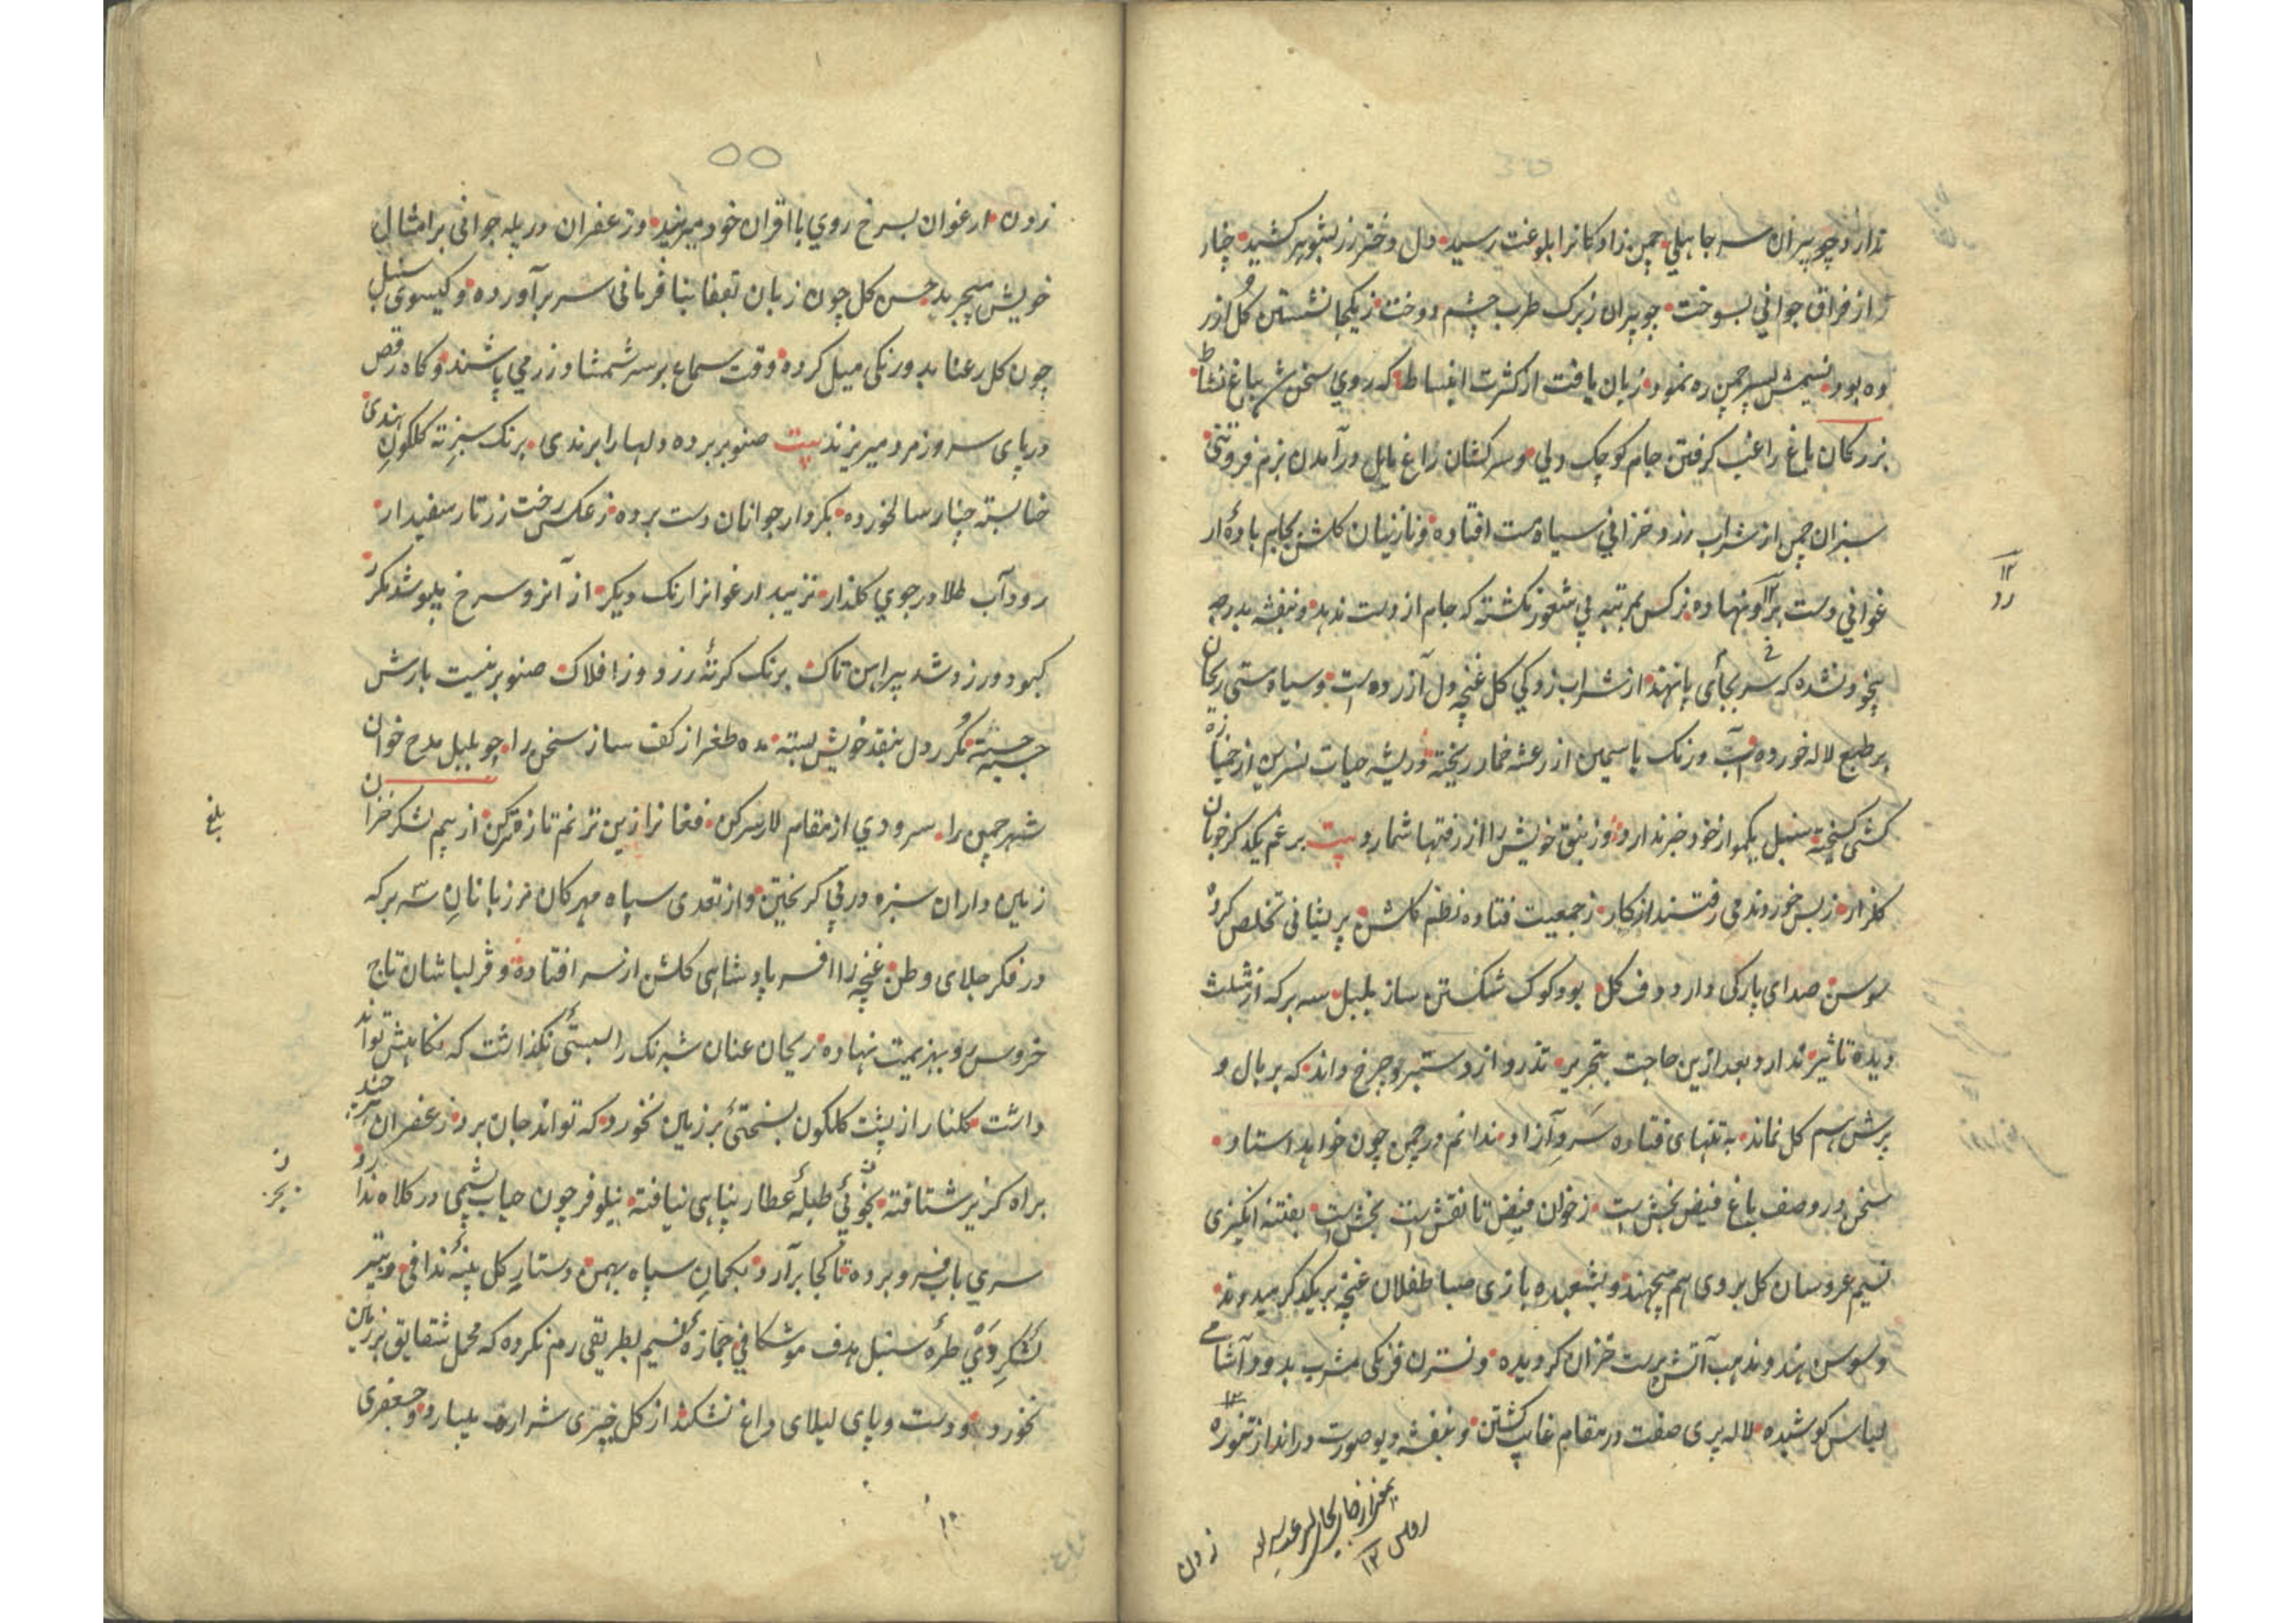 ندارد چو پیران سر جاهلی چمن زادکانرا بلوغت رسید دل دختر رز بشوهر کشید چنار
از فراق جوانی بسوخت چو پیران زبرک طرب چشم دوخت زیکجا نشستن کل آزر
ده بود نسیمش بسیر چمن ره نمود زبان یافت از کثرت انبساط که روی سخن شد بباغ نشاط
بزرکان باغ راغب کرفتن جام کوچک دلی و سرکشان راغ مایل درآمدن بزم فروتنی
سبزان چمن از شراب رزد خزانی سیاه مست افتاده و نازنینان کلشن بجام بادهٔ ار
غوانی دست برآورنهاده نرکس بمرتبه بی شعور نکشته که جام از دست ندهد و بنفشه بدرجه
بیخود نشده که سر بجائی پا نهند از شراب زدکی کل غنچه دل آزرده است و سیاه مستی ریحان
بر طبع لاله خورده است ورنک یاسمین از رعشه خمار ریخته و ریشه حیات نسرین از خمیازه
کشی کسیخته سنبل یکمو از خود خبر ندارد وزنبق خویش را از رفتها شمارد بیت بر غم یکدکر خوبان
کلزار زبس خوردند می رفتند از کار زجمعیت فتاده نظم کلشن پریشانی تخلص کرده
سوسن صدای پارکی دارد دف کل بود کوک شکستن ساز بلبل سه برکه از مثلث
دیده تاثیر ندارد بعد ازین حاجت بتحریر تذرو از دستبرد چرخ داند که بر بال و
پرش هم کل نماند به تنهای فتاده سرو آزاد ندانم در چمن چون خواهد استاد
سخن در وصف باغ فیض بخش است زخوان فیض تا نقش است بخش است بفتنه انکیزی
نسیم عروسان کل بروی هم میجهند و بشعبده بازی صبا طفلان غنچه بر یکدکر میدوند
و سوسن هندو مذهب آتش پرست خزان کردیده و نسترن فرنکی مشرب بدود آشامی
لباس کوشیده لاله پری صفت در مقام غایب کشتن و بنفشه دیو صورت در انداز تنوره
زدن
۵۵
زدن ارغوان بسرخ روی با اقران خود میبزید و زعفران در پله جوانی بر امثال
خویش میچربد حسن کل چون زبان بقفا بنافرمانی سر برآورده و کیسوی سنبل
چون کل رعنا بدورنکی میل کرده وقت سماع بر سر شمشاد زر می پاشند و کاه رقص
در پای سرو زمرد میریزند بیت صنوبر برده دلها را برندی برنک سبزته کلکون هندی
حنا بسته چنار سالخورده بکردار جوانان دست برده زعکس رخت زرتار سفیدار
رود آب طلا در جوی کلذار نزیبد ارغوانرا رنک دیکر از آنرو سرخ میپوشد مکرر
کبود و رزد شد پیراهن تاک برنک کرتهٔ رزد وز افلاک صنوبر نیست بارش
جسته جسته مکرر دل بنقد خویش بسته مده طغرا ز کف ساز سخن را چو بلبل مدح خوان
شهر چمن را سرودی از مقام لار سرکن فغانرا زین ترنم تازه ترکن از بیم لشکر خزان
زمین داران سبزه در پی کریختن و از تعدی سپاه مهرکان مرزبانان سه برکه
در فکر جلای وطن غنچه را افسر پادشاهی کلشن از سر افتاده و قزلباشان تاج
خروس رو بهزیمت نهاده ریحان عنان شبرنک را بستی نکذاشت که نکاهش تواند
داشت کلنار از پشت کلکون بسختی بر زمین نخورد که تواند جان برد زعفران هر چند
براه کزیر شتافته بجز طبلهٔ عطار پناهی نیافته نیلوفر چون حباب پشمی در کلاه ندارد
سری بآب فرو برده تا کجا برآرد بکمان سپاه بهمن دستار کل پنبهٔ ندافی و بتیر
لشکر دی طرهٔ سنبل هدف موشکافی جمازهٔ نسیم بطریقی رم نکرده که محمل شقایق بر زمین
نخورد و دست و پای لیلای داغ نشکند از کل خیری شراره میبارد و جعفری
بلغ